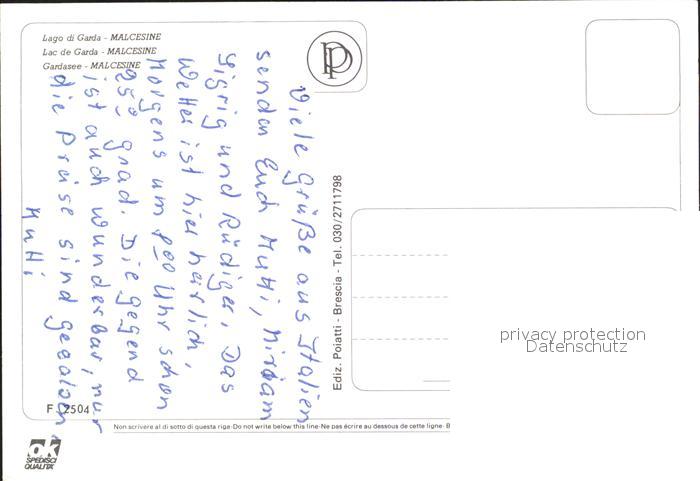 Lago di Garda - MALCESINE
Lac de Garda - MALCESINE
Gardasee - MALCESINE
Viele Grüße aus Italien
senden Euch Mutti, Miriam
und Rüdiger. Das
Wetter ist hier herrlich,
Morgens um 8⁰⁰ Uhr schon
25° Grad. Die gegend
ist auch wunderbar, nur
die Preise sind
Mutti
Ediz. Poiatti - Brescia - Tel. 030/2711798
F 2504
Non scrivere al di sotto di questa riga-Do not write below this line-Ne pas écrire au dessous de cette ligne- B
ok
SPEDISCI
QUALITÀ
privacy protection
Datenschutz